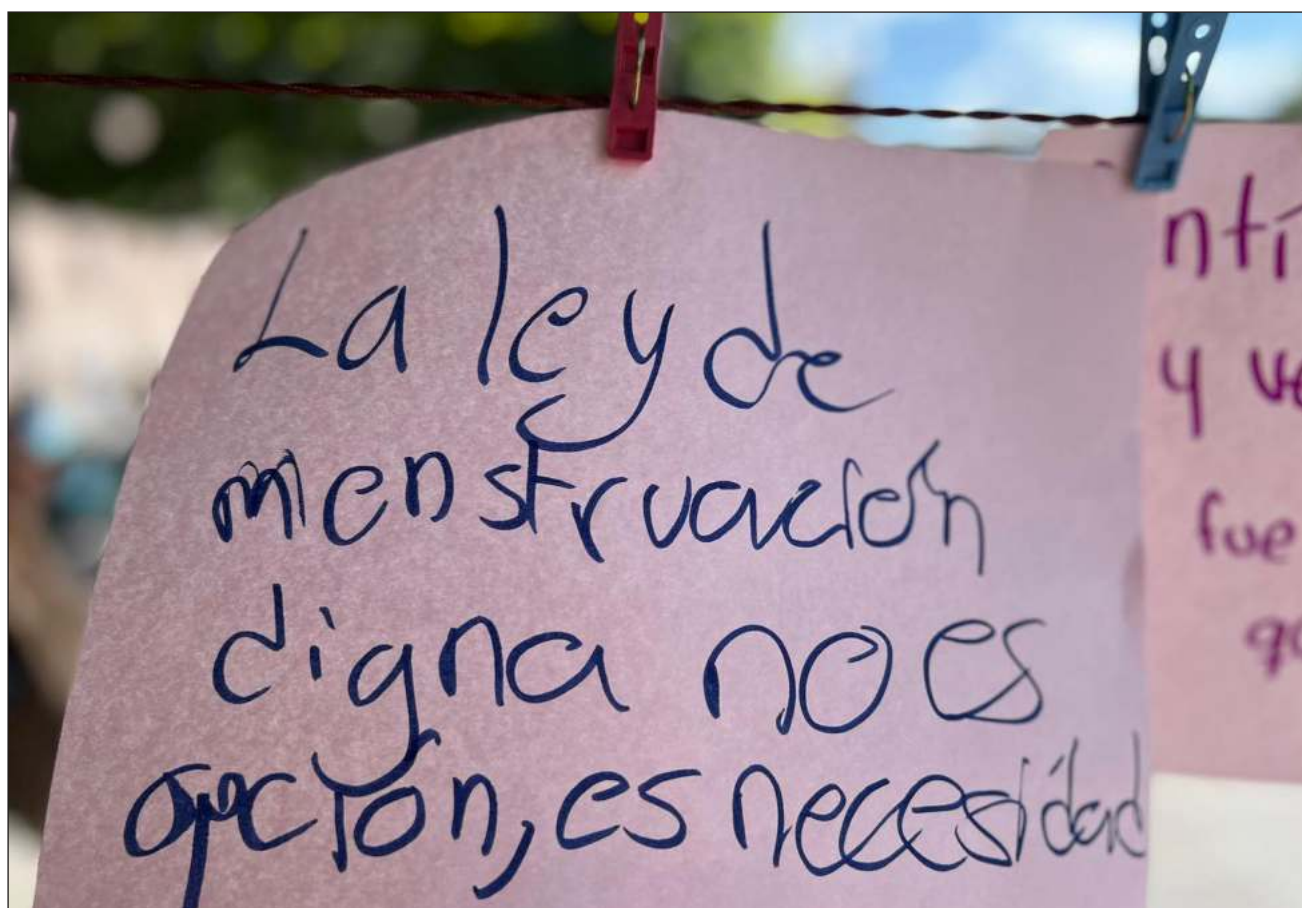 La ley de
menstruación
digna no es
opción, es necesidad
ntí
y ve
fue